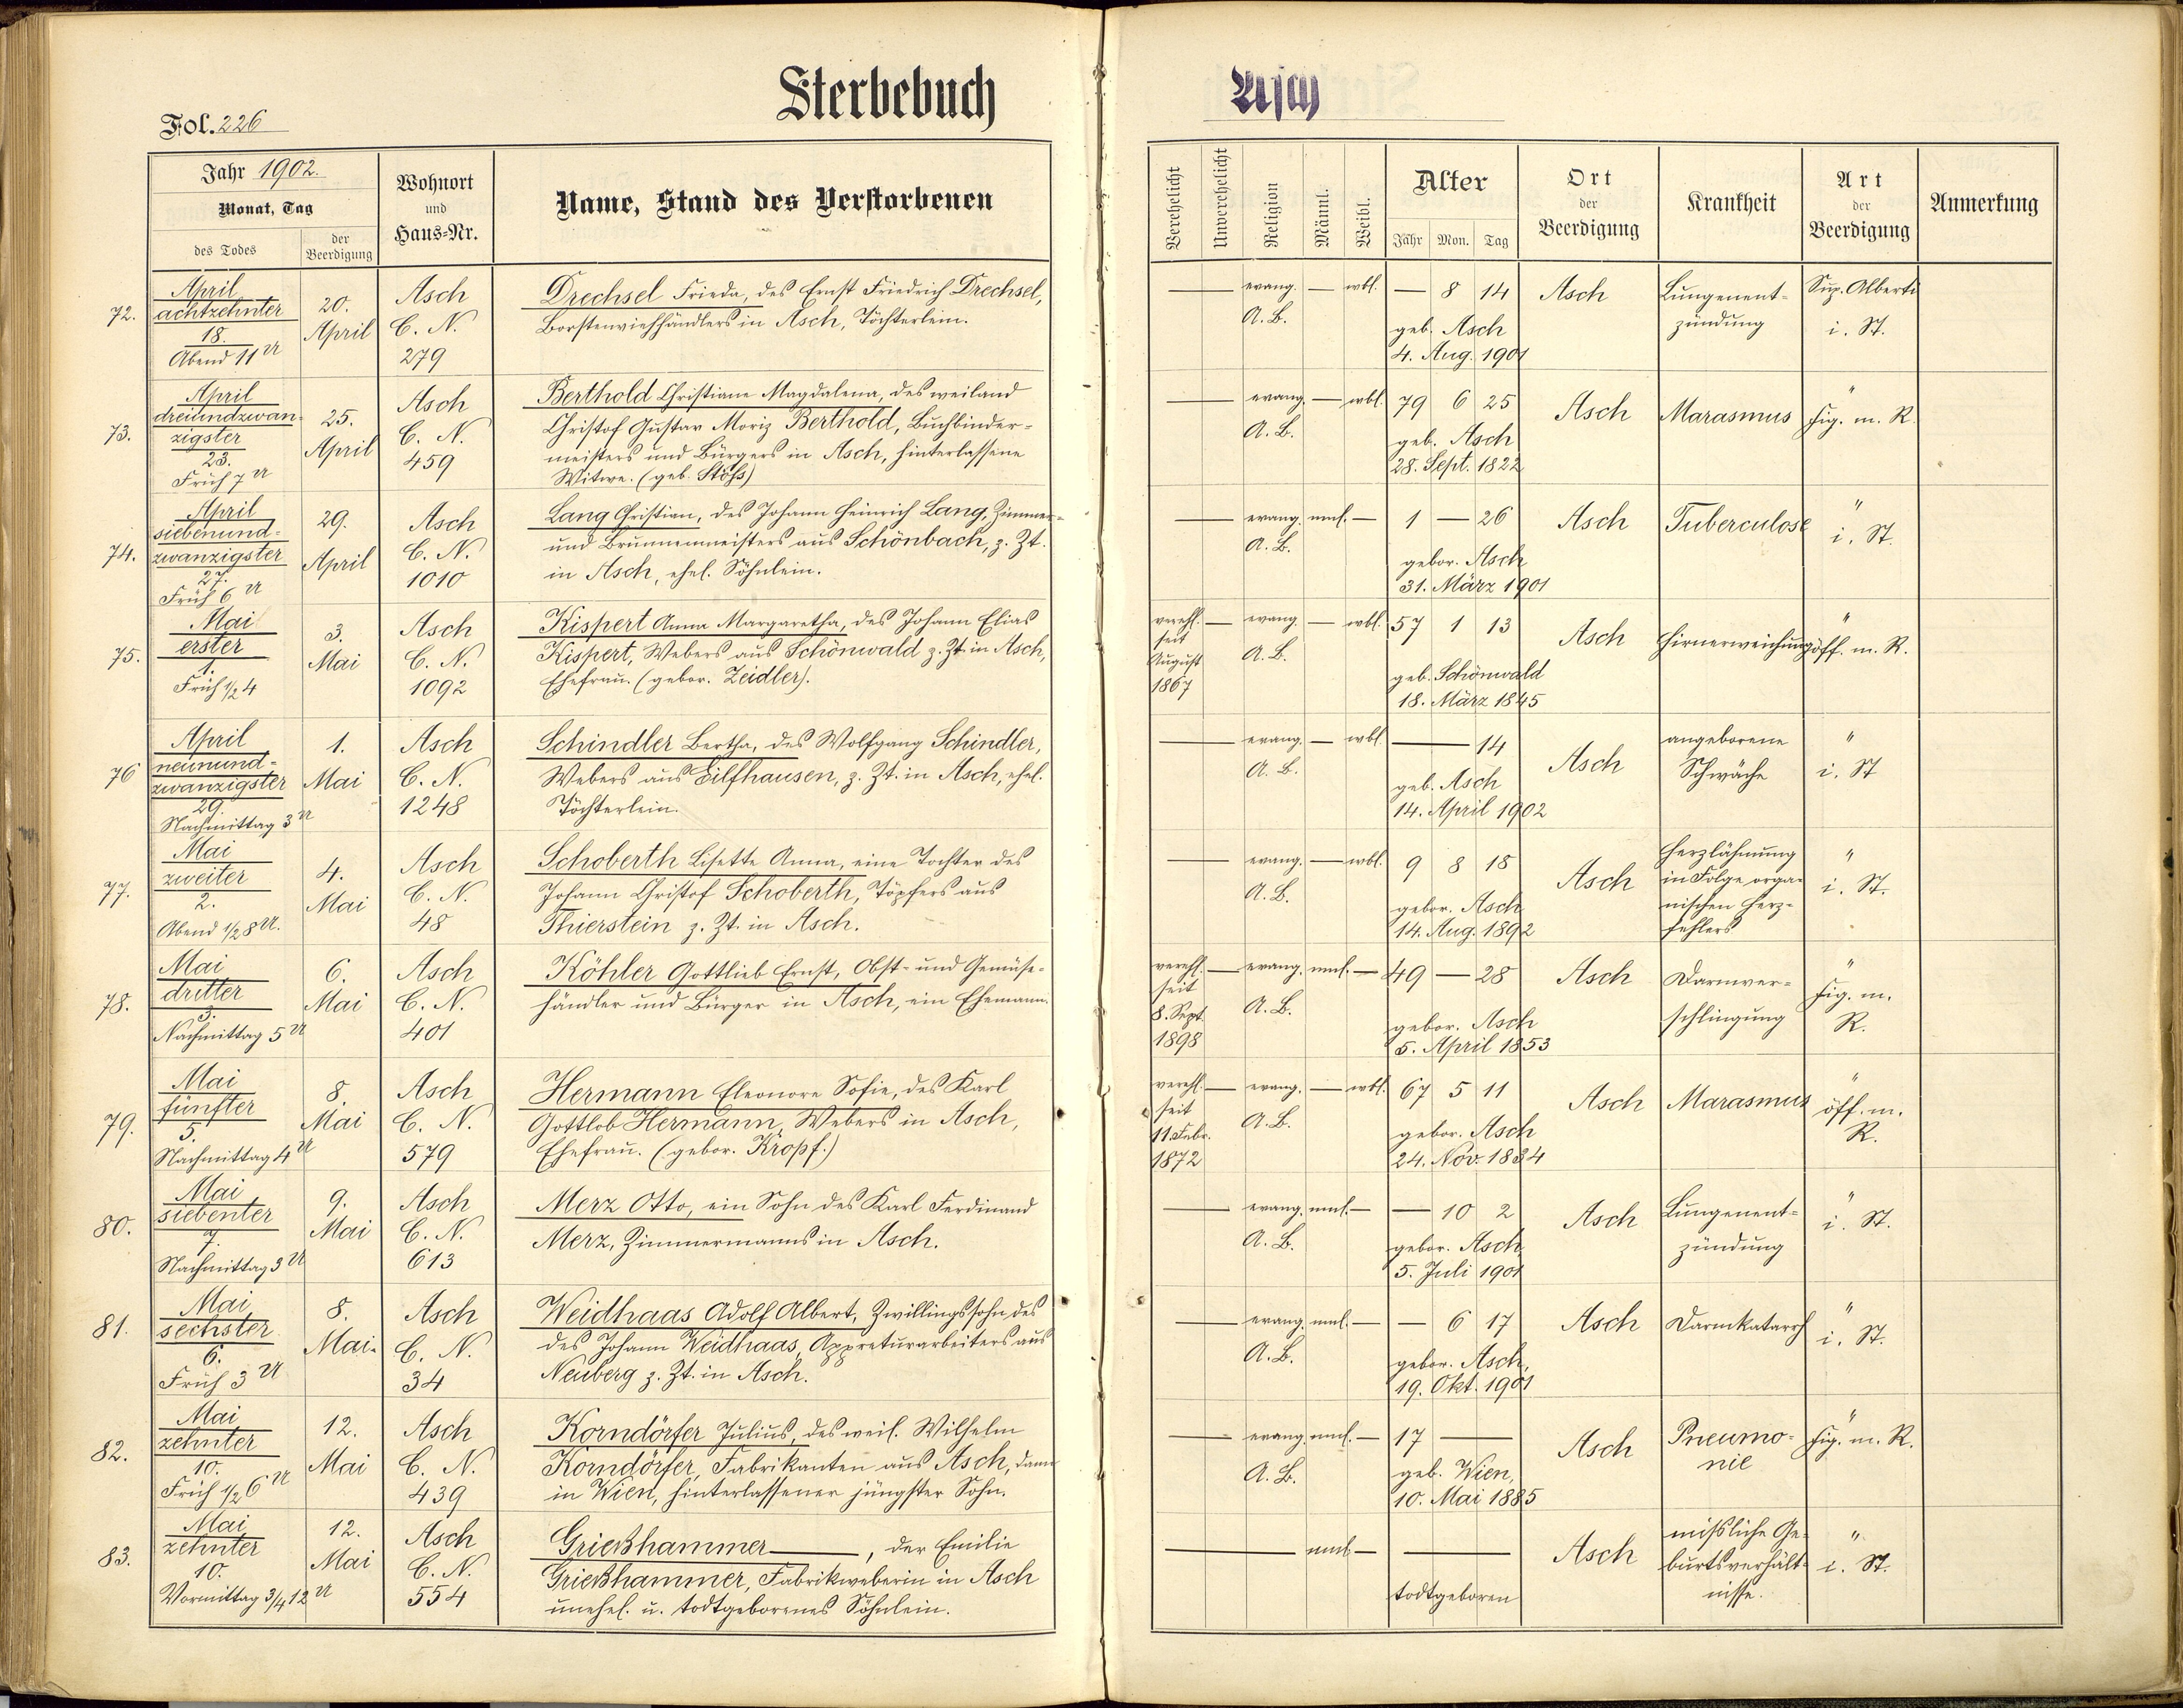 Sterbebuch Asch
Fol. 226
Jahr 1902.
Monat, Tag
des Todes
der
Beerdigung
Wohnort
und
Haus=Nr.
Name, Stand des Verstorbenen
Verehelicht
Unverehelicht
Religion
Männl.
Weibl.
Alter
Jahr Mon. Tag
Ort
der
Beerdigung
Krankheit
Art
der
Beerdigung
Anmerkung
72.
April
achtzehnter
18.
Abend 11 U
20.
April
Asch
C. N.
279
Drechsel Frieda, des Ernst Friedrich Drechsel,
Borstenviehhändlers in Asch, Töchterlein.
— evang. — wbl.
A. B.
— 8 14
geb. Asch
4. Aug. 1901
Asch
Lungenent-
zündung
Sup. Alberti
i. St.
73.
April
dreiundzwan-
zigster
23.
Früh 7 U
25.
April
Asch
C. N.
459
Berthold Christiane Magdalena, des weiland
Christof Gustav Moriz Berthold, Buchbinder-
meisters und Bürgers in Asch, hinterlassene
Witwe. (geb. Stöß)
— evang. — wbl.
A. B.
79 6 25
geb. Asch
28. Sept. 1822
Asch
Marasmus
"
Fig. m. R.
74.
April
siebenund-
zwanzigster
27.
Früh 6 U
29.
April
Asch
C. N.
1010
Lang Christian, des Johann Heinrich Lang, Zimmer-
und Brunnenmeisters aus Schönbach, z. Zt.
in Asch, ehel. Söhnlein.
— evang. mnl. —
A. B.
1 — 26
gebor. Asch
31. März 1901
Asch
Tuberculose
"
i. St.
75.
Mai
erster
1.
Früh 1/2 4
3.
Mai
Asch
C. N.
1092
Kispert Anna Margaretha, des Johann Elias
Kispert, Webers aus Schönwald z. Zt. in Asch,
Ehefrau. (gebor. Zeidler).
verehl. — evang. — wbl.
seit
August
1867
A. B.
57 1 13
geb. Schönwald
18. März 1845
Asch
Hirnerweichung
"
öff. m. R.
76
April
neunund-
zwanzigster
29.
Nachmittag 3 U
1.
Mai
Asch
C. N.
1248
Schindler Bertha, des Wolfgang Schindler,
Webers aus Eilfhausen, z. Zt. in Asch, ehel.
Töchterlein.
— evang. — wbl.
A. B.
— 14
geb. Asch
14. April 1902
Asch
angeborene
Schwäche
"
i. St
77.
Mai
zweiter
2.
Abend 1/2 8 U.
4.
Mai
Asch
C. N.
48
Schoberth Lisette Anna, eine Tochter des
Johann Christof Schoberth, Töpfers aus
Thierstein z. Zt. in Asch.
— evang. — wbl.
A. B.
9 8 18
gebor. Asch
14. Aug. 1892
Asch
Herzlähmung
in Folge orga-
nischen Herz-
fehlers
"
i. St.
78.
Mai
dritter
3.
Nachmittag 5 U
6.
Mai
Asch
C. N.
401
Köhler Gottlieb Ernst, Obst- und Gemüse-
händler und Bürger in Asch, ein Ehemann.
verehl. — evang. mnl. —
seit
8. Sept.
1898
A. B.
49 — 28
gebor. Asch
5. April 1853
Asch
Darmver-
schlingung
"
Fig. m.
R.
79.
Mai
fünfter
5.
Nachmittag 4 U
8.
Mai
Asch
C. N.
579
Hermann Eleonore Sofie, des Karl
Gottlob Hermann, Webers in Asch,
Ehefrau. (gebor. Kropf.)
verehl. — evang. — wbl.
seit
11. Febr.
1872
A. B.
67 5 11
gebor. Asch
24. Nov. 1834
Asch
Marasmus
"
öff. m.
R.
80.
Mai
siebenter
7.
Nachmittag 3 U
9.
Mai
Asch
C. N.
613
Merz Otto, ein Sohn des Karl Ferdinand
Merz, Zimmermanns in Asch.
— evang. mnl. —
A. B.
— 10 2
gebor. Asch,
5. Juli 1901
Asch
Lungenent-
zündung
"
i. St.
81.
Mai
sechster
6.
Früh 3 U
8.
Mai.
Asch
C. N.
34
Weidhaas Adolf Albert, Zwillingssohn des
des Johann Weidhaas, Appreturarbeiters aus
Neuberg z. Zt. in Asch.
— evang. mnl. —
A. B.
— 6 17
gebor. Asch,
19. Okt. 1901
Asch
Darmkatarrh
"
i. St.
82.
Mai
zehnter
10.
Früh 1/2 6 U
12.
Mai
Asch
C. N.
439
Korndörfer Julius, des weil. Wilhelm
Korndörfer, Fabrikanten aus Asch, dann
in Wien, hinterlassener jüngster Sohn.
— evang. mnl. —
A. B.
17 —
geb. Wien,
10. Mai 1885
Asch
Pneumo-
nie
"
Fig. m. R.
83.
Mai
zehnter
10.
Vormittag 3/4 12 U
12.
Mai
Asch
C. N.
554
Grießhammer —, der Emilie
Grießhammer, Fabrikweberin in Asch
unehel. u. todtgeborenes Söhnlein.
— mnl. —
—
todtgeboren
Asch
mißliche Ge-
burtsverhält-
nisse.
"
i. St.